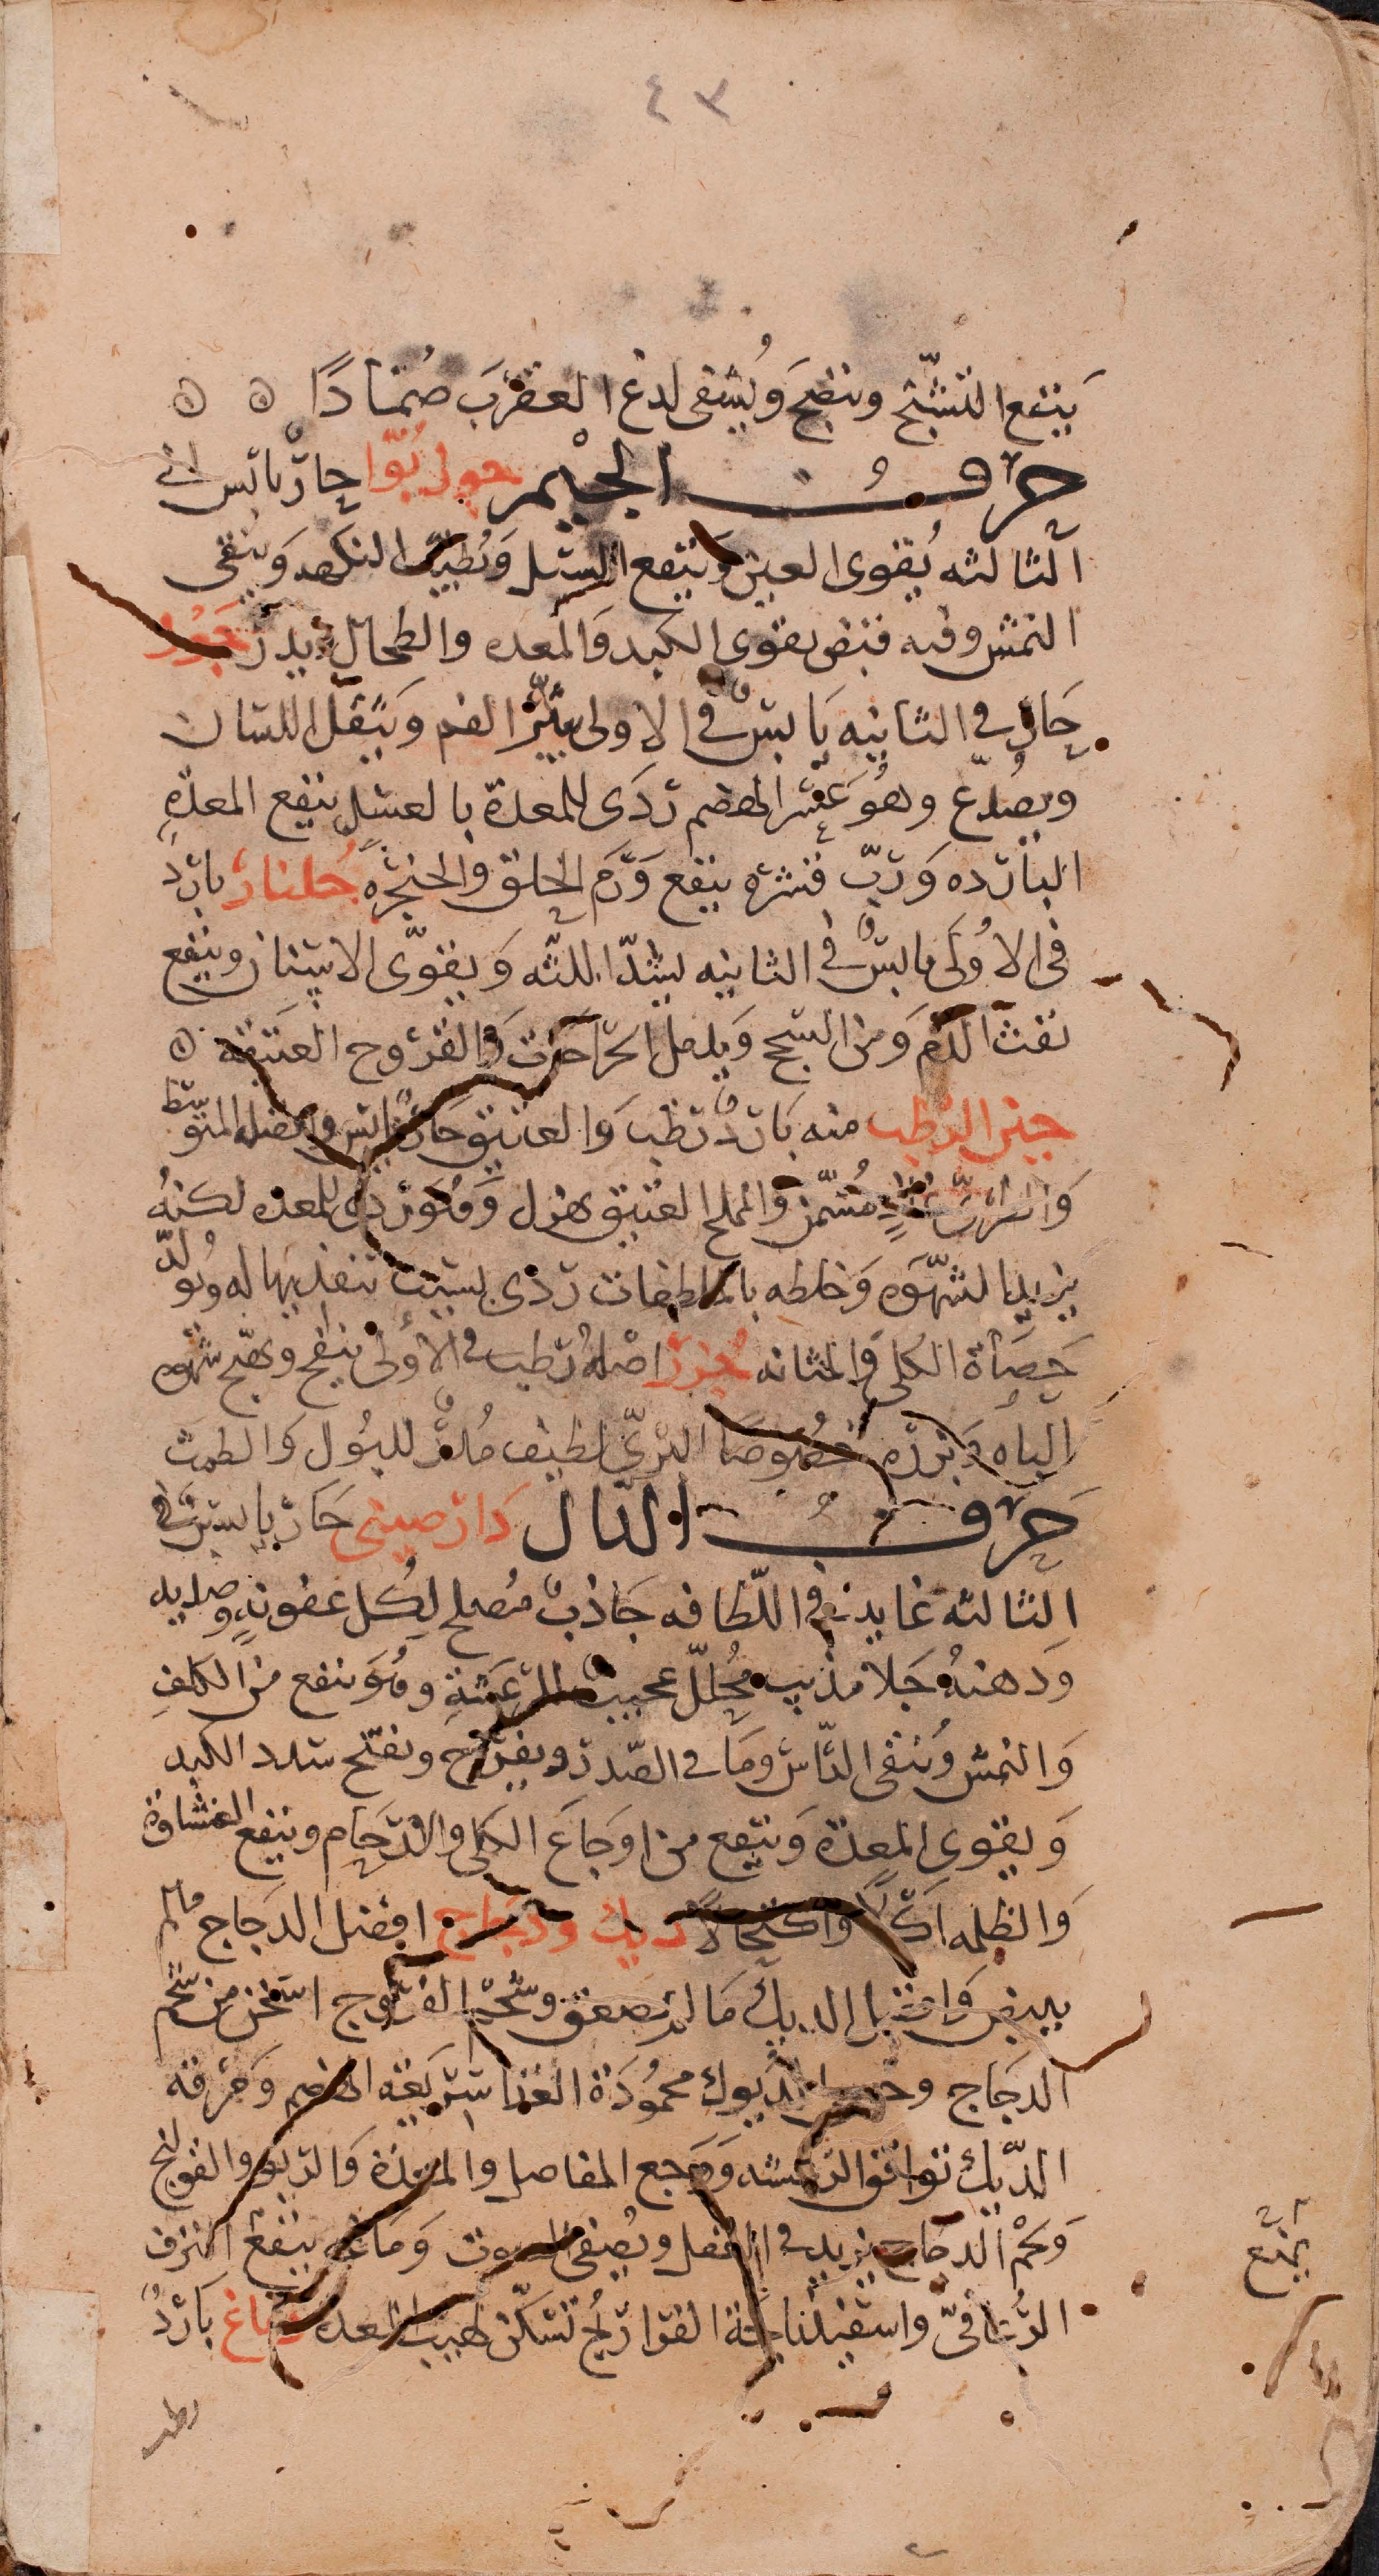 ٤٣
ينفع التشنج وينضج ويشفى لدغ العقرب ضمادًا ه ه
حرف الجيم جوز بوا حار يابس فى
الثالثه يقوى العين وينفع السبل ويطيب النكهه وينقى
النمش وفيه قبض يقوى الكبد والمعده والطحال ويدر جوز
حار فى الثانيه يابس فى الاولى يبثر الفم ويثقل اللسان
ويصدع وهو عسر الهضم ردى للمعدة بالعسل ينفع المعدة
البارده ورب قشره ينفع ورم الحلق والحنجره جلنار بارد
فى الاولى يابس فى الثانيه يشد اللثه ويقوى الاسنان وينفع
نفث الدم ومن السحج ويدمل الجراحات والقروح العتيقه ه
جبن الرطب منه بارد رطب والعتيق حار يابس وافضله المتوسط
والرطب مسمن والمملح العتيق يهزل وهو ردى للمعده لكنه
يزيد الشهوه وخلطه بالملطفات ردى بسبب تنفيذيها له ويولد
حصاة الكلى والمثانه جزر اصله رطب فى الاولى ينفخ ويهيج شهوه
الباه وبزره خصوصا البرى لطيف مدر للبول والطمث
حرف الدال دار صينى حار يابس فى
الثالثه غايه فى اللطافه جاذب مصلح لكل عفونه وصديديه
ودهنه جلا مذيب محلل عجيب للرعشة وهو ينفع من الكلف
والنمش وينقى الراس وما فى الصدر ويفرح ويفتح سدد الكبد
ويقوى المعدة وينفع من اوجاع الكلى والارحام وينفع الغشاوة
والظلمه اكلا واكتحالا ديك ودجاج افضل الدجاج ما لم
يبيض وافضل الديك ما لم يصعق وشحم الفروج اسخن من شحم
الدجاج وخصى الديوك محمودة الغذا سريعه الهضم ومرقه
الديك توافق الرعشه ووجع المفاصل والمعدة والربو والقولنج
ولحم الدجاج يزيد فى العقل ويصفى الصوت ودماغه ينفع النزف
الرعافى واسفيدناجة الفراريج تسكن لهيب المعده دماغ بارد
يمنع
رطب